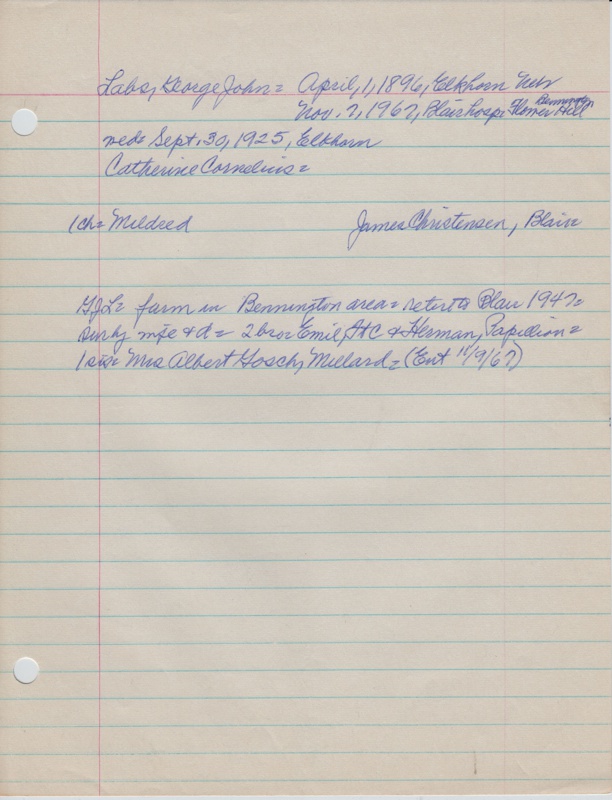 Labs, George John= April, 1, 1896, Elkhorn Nebr
Nov. 7, 1967, Blair hosp= Flower Hill Bennington
wed= Sept. 30, 1925, Elkhorn
Catherine Cornelius=
1 ch= Mildred James Christensen, Blair=
GJL= farm in Bennington area= ret to Blair 1947=
surby wife & d= 2 bro= Emil, & Herman, Papillion=
1 sis= Mrs Albert Gosch, Millard= (Ent 11/9/67)